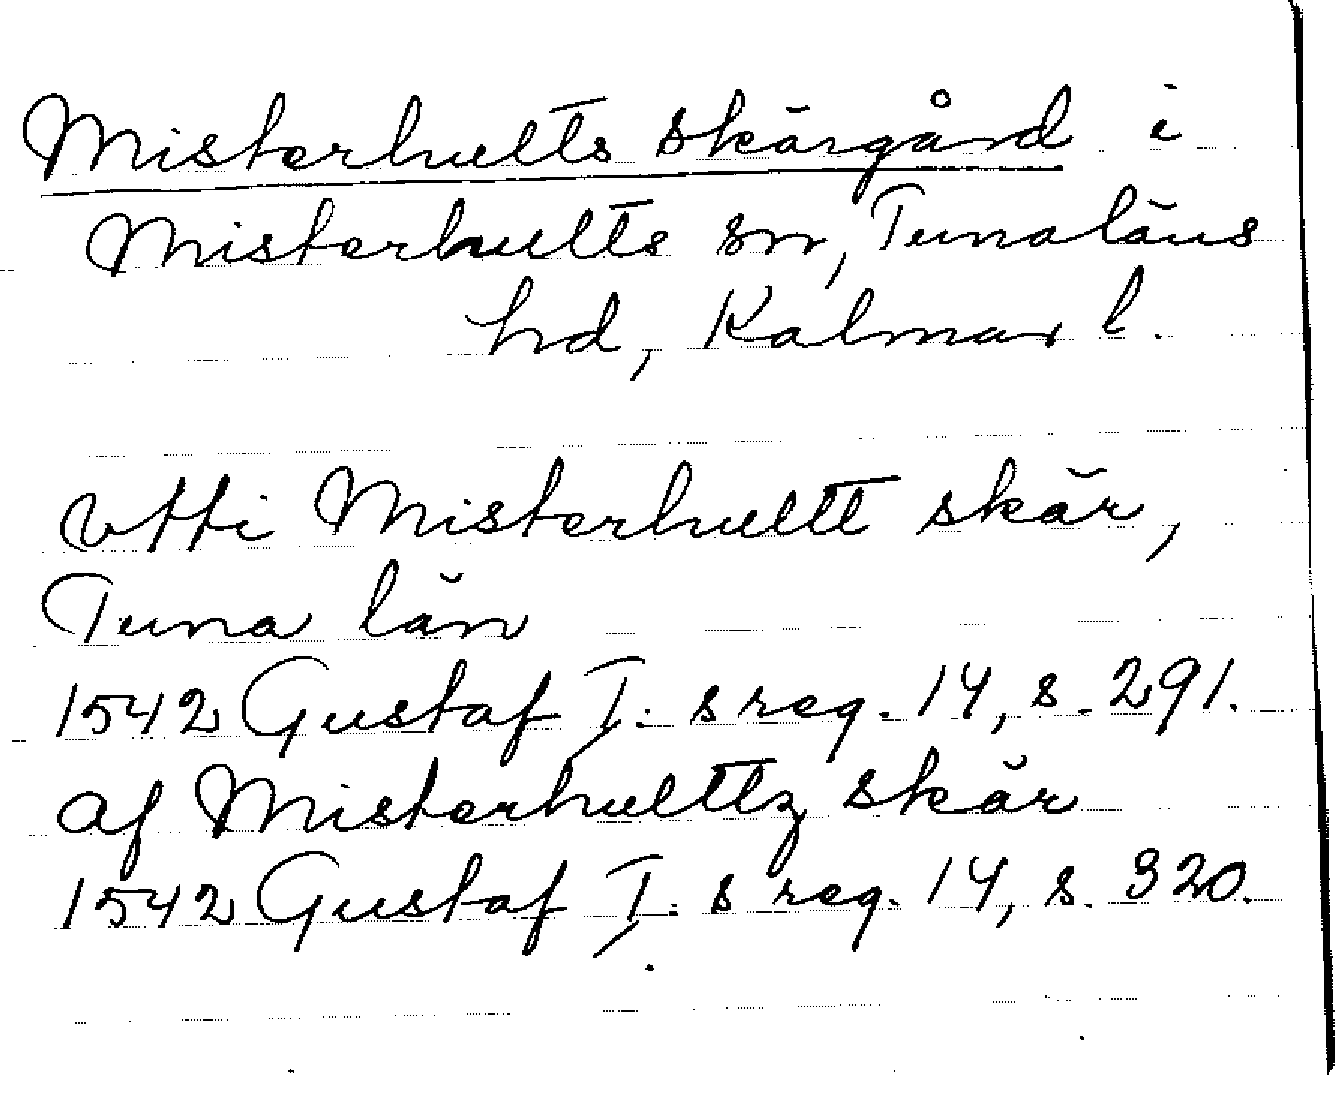 Misterhults skärgård i
Misterhults sn, Tunaläns
hd, Kalmar l.
vtti Misterhultt skär,
Tuna län
1542 Gustaf I:s reg. 14, s. 291.
af Misterhulttz skär
1542 Gustaf I:s reg. 14, s. 320.